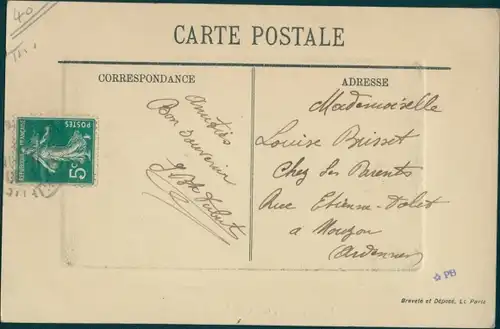 40
CARTE POSTALE
CORRESPONDANCE
ADRESSE
Amitiés
Bon souvenir
POSTES
RÉPUBLIQUE FRANÇAISE
5c
Mademoiselle
Louise Brisset
Chez ses Parents
Rue Etienne-Dolet
à Mouzon
Ardennes
PB
Breveté et Déposé, L: Paris